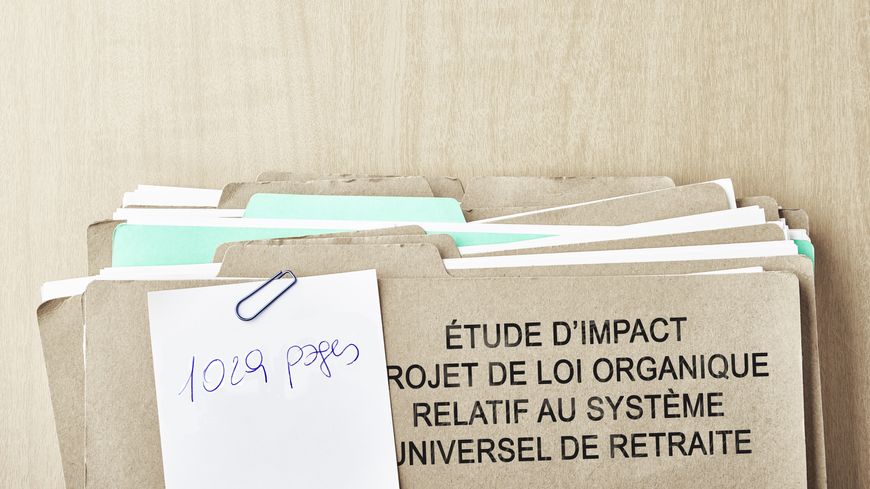 1029 pages
ÉTUDE D'IMPACT
ROJET DE LOI ORGANIQUE
RELATIF AU SYSTÈME
UNIVERSEL DE RETRAITE